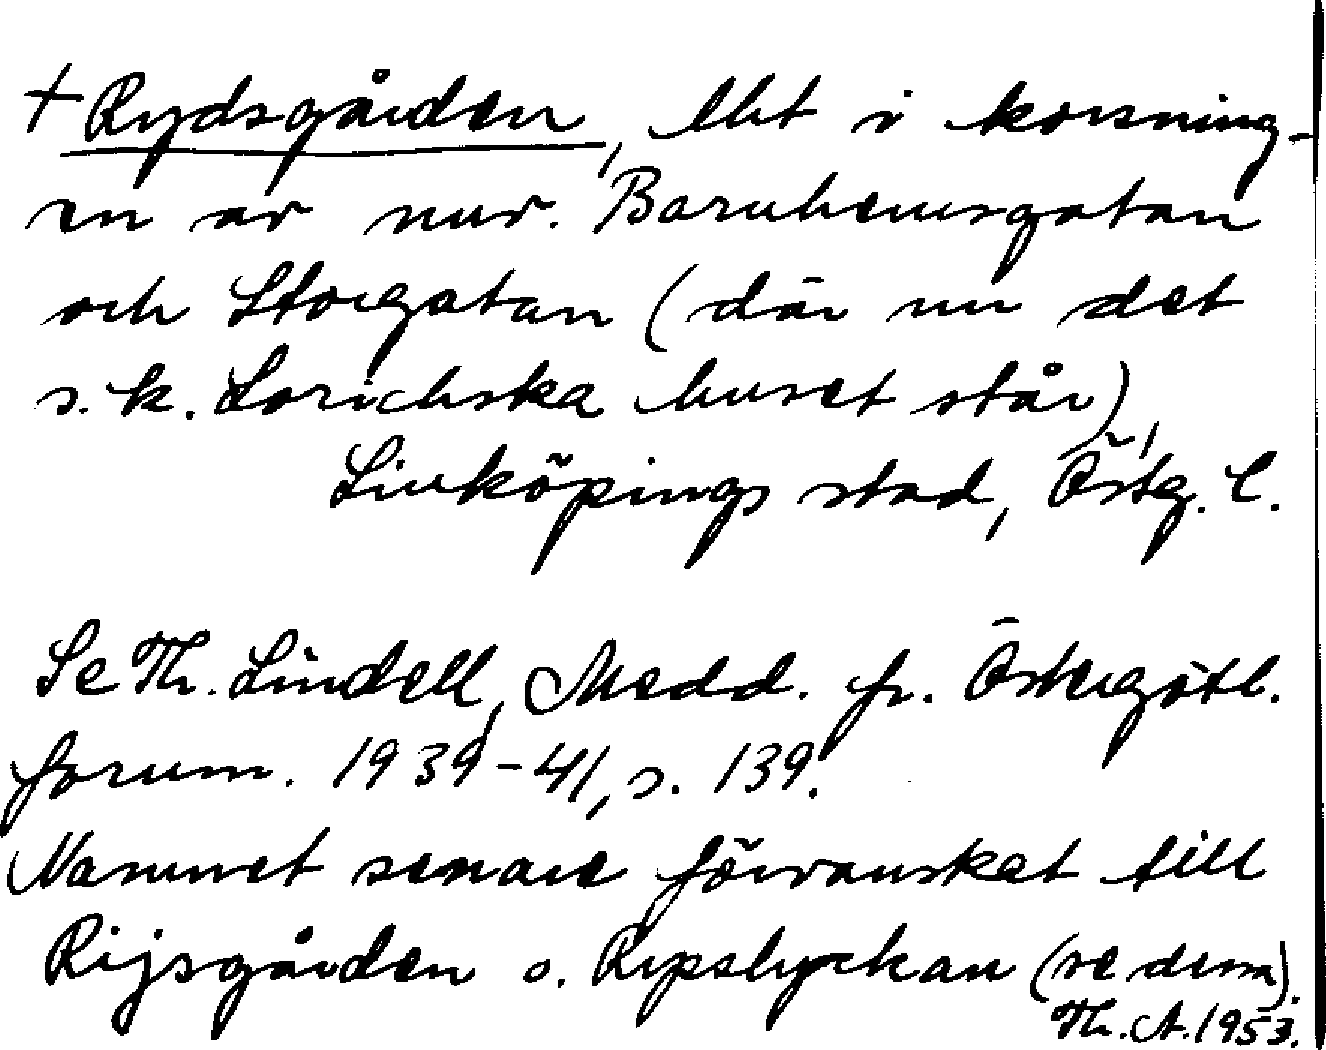 + Rydsgården, tlht i korsning-
en av nuv. Barnhemsgatan
och Storgatan (där nu det
s.k. Lorichska huset står),
Linköpings stad, Östg. l.
Se Th. Lindell, Medd. fr. Östergötl.
fornm. 1939-41, s. 139.
Namnet senare förvanskat till
Rijsgården o. Ripslyckan (se dessa).
Th. A. 1953.